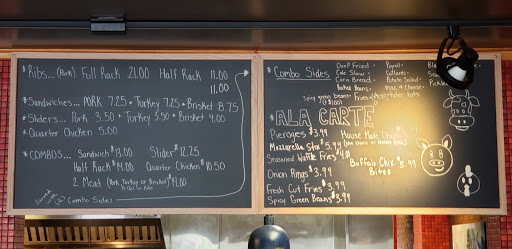 *Ribs... (Pork) Full Rack 21.00 Half Rack 11.00
11.00
*Sandwiches... Pork 7.25 • Turkey 7.25 • Brisket 8.75
*Sliders... Pork 3.50 • Turkey 3.50 • Brisket 4.00
*Quarter Chicken 5.00
*Combos... Sandwich $13.00 Slider $12.75
Half Rack $19.00 Quarter Chicken $10.50
2 Meat (Pork, Turkey or Brisket) $19.00
Combo Sides
*Combo Sides •
Deep Fried
Cole Slaw
Corn Bread
Baked Beans
Collards
Potato Salad
Mac & Cheese
Spicy green beans
tater tots
*ALA CARTE
Pierogies $3.99
Mozzarella Stix $5.99
Seasoned Waffle Fries $4.99
Onion Rings $3.99
Fresh Cut Fries $3.99
Spicy Green Beans $3.99
House Made Chips
Buffalo Chix $8.99
Bites